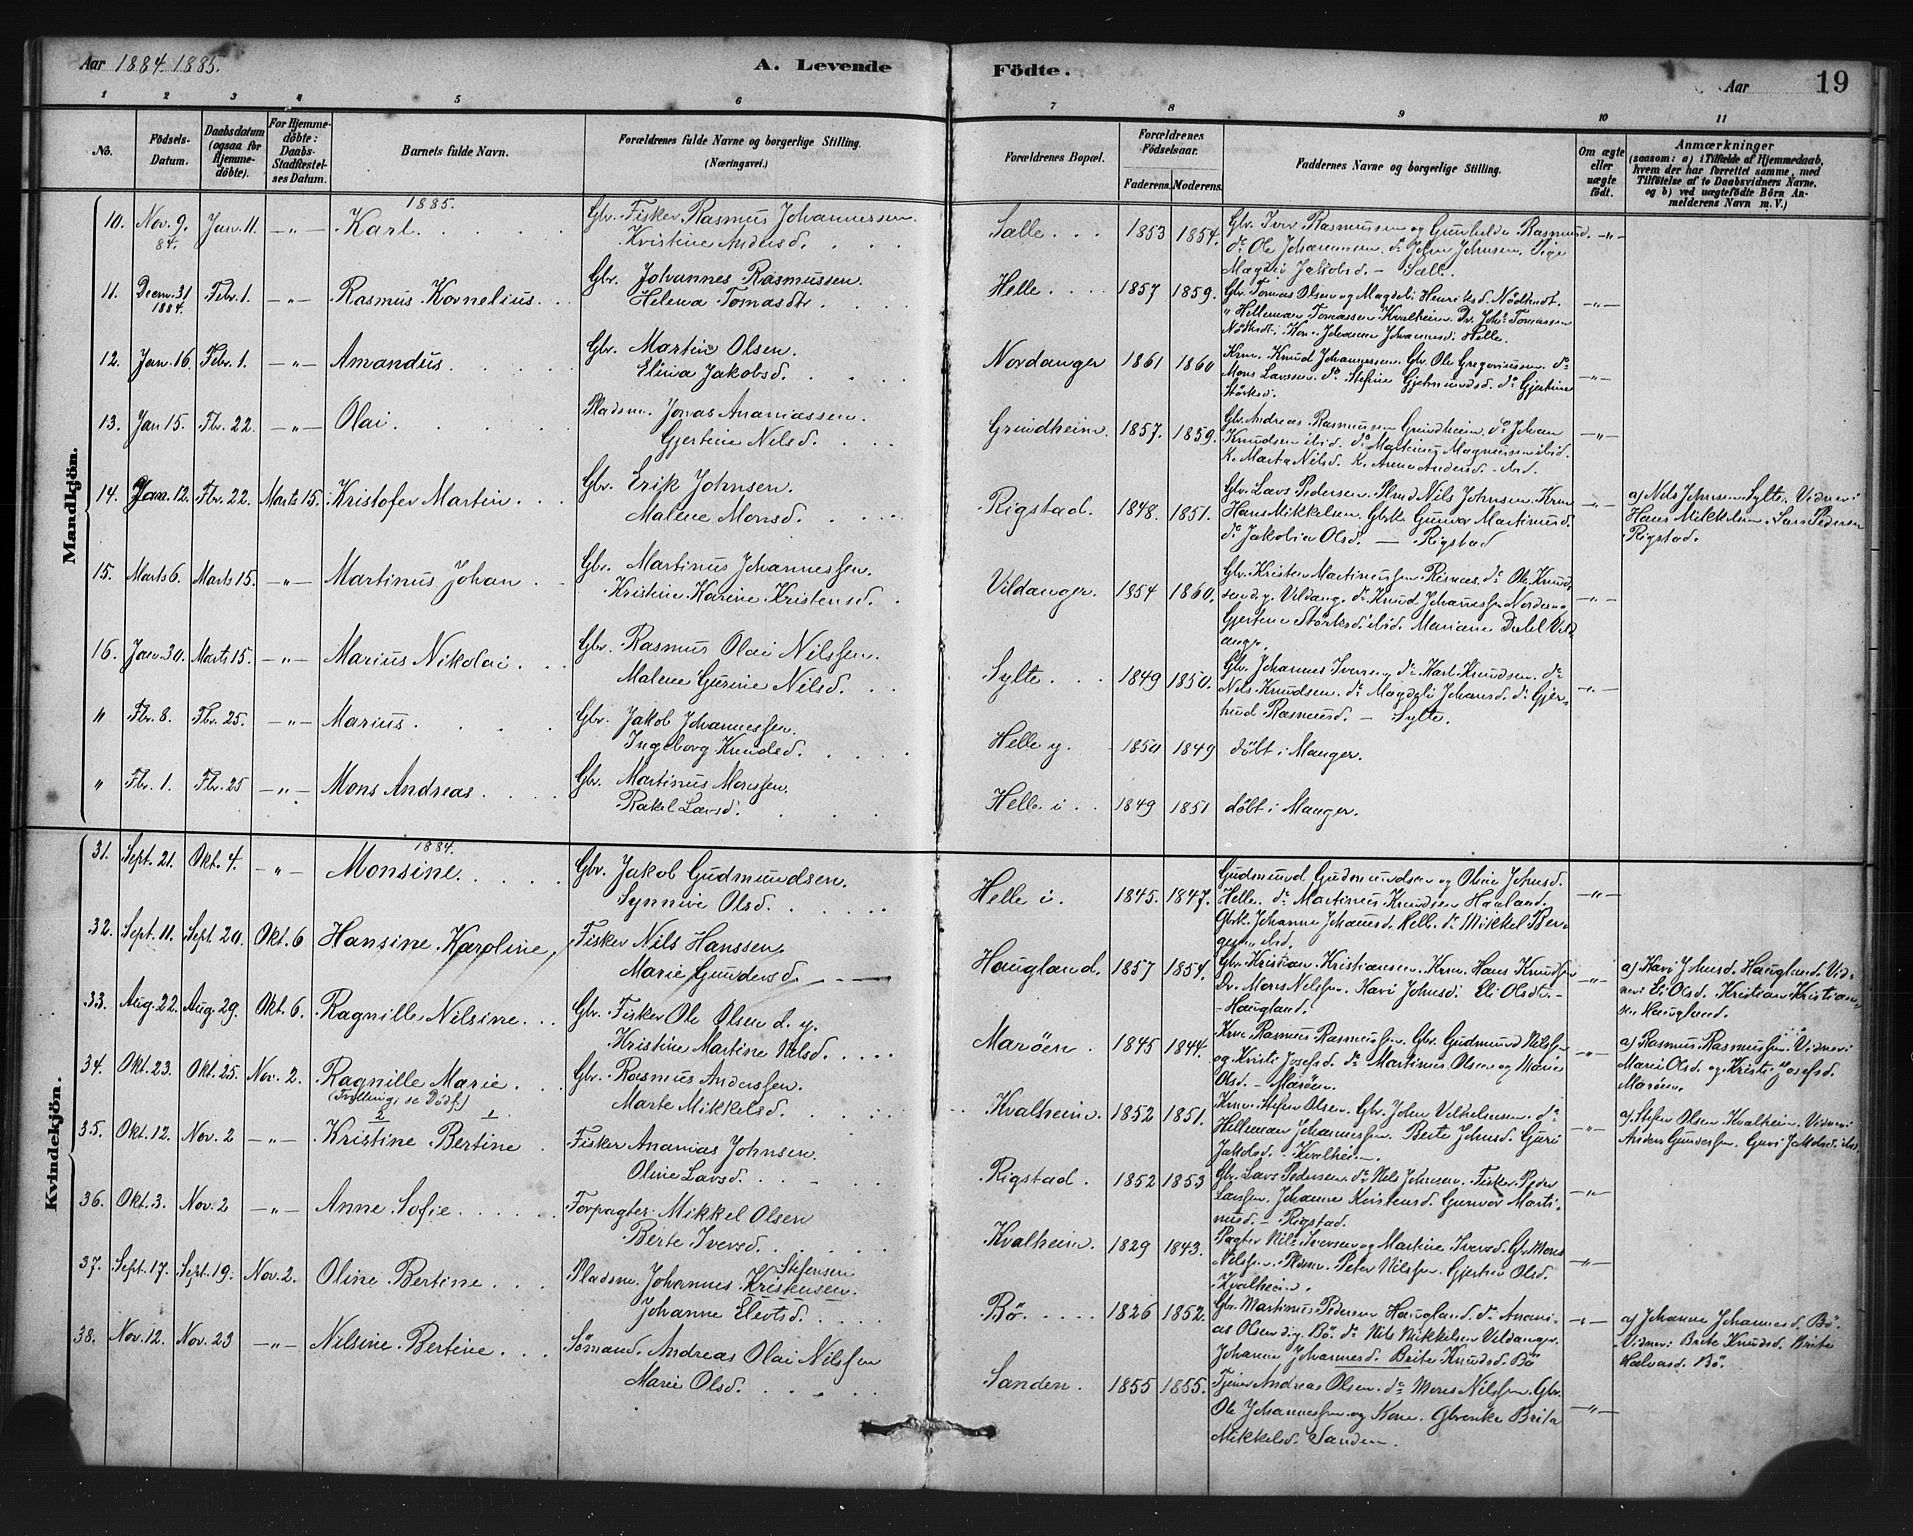 Aar 1884. 1885.
A. Levende Födte.
Aar
19
1 2 3 4 5 6 7 8 9 10 11
No.
Födsels-Datum.
Daabsdatum (ogsaa for Hjemme-döbte).
For Hjemme-döbte: Daabs-Stadfæstelses Datum.
Barnets fulde Navn.
Forældrenes fulde Navne og borgerlige Stilling. (Næringsvei.)
Forældrenes Bopæl.
Forældrenes Födselsaar.
Faderens. Moderens.
Faddernes Navne og borgerlige Stilling.
Om ægte eller uægte födt.
Anmærkninger
(saasom: a) i Tilfælde af Hjemmedaab, hvem der har forrettet samme, med Tilföielse af to Daabsvidners Navne, og b) ved uægtefödte Börn Anmelderens Navn m. V.)
Mandkjön.
1885.
10. Nov. 9. 84. Jan. 11. —„— Karl. Gbr. Fisker Rasmus Johannessen. Kristine Andersd. Sælle. 1853 1854. Gbr. Iver Rasmussen og Gunhilde Rasmusd. do Ole Johannessen. do John Johnsen. Pige Magdli Jakobsd. — Sælle. —„—
11. Decm. 31 1884. Febr. 1. —„— Rasmus Kornelius. Gbr. Johannes Rasmussen. Helena Tomasdtr. Helle. 1857 1859. Gbr. Tomas Olsen og Magdeli Henriksd. Nödtvedt. „ Helleman Tomassen Kvalheim. Dr. Johs Tomassen Nödtvedt. Kone Johanne Johannesd. Helle. —„—
12. Jan. 16. Febr. 1. —„— Amandus. Gbr. Martin Olsen. Elina Jakobsd. Nordanger 1861 1860 Krm. Knud Johannessen. Gbr. Ole Gregoriussen. do Mons Larssen. do Stefine Gjermundsd. do Gjertine Störksd. —„—
13. Jan 15. Fbr. 22. —„— Olai. Pladsm. Jonas Ananiassen. Gjertine Nilsd. Grundheim. 1857. 1859. Gbr. Andreas Rasmussen Grundheim. do Johan Knudsen ibid. do Martinus Magnussen ibid. K. Marta Nilsd. K. Anna Andersd. ibid. —„—
14. Jan. 12. Fbr. 22. Marts 15. Kristofer Martin. Gbr. Erik Johnsen. Malene Monsd. Rigstad. 1848. 1851. Gbr. Lars Pedersen. Nils Johnsen. Krm Hans Mikkelsen. Gbrk. Gunvor Martinusd. do Jakobia Olsd. — Rigstad a) Nels Johnsen Sylte. Vidner: Hans Mikkelsen. Lars Pedersen Rigstad.
15. Marts 6. Marts 15. —„— Martinus Johan Gbr. Martinus Johannessen. Kristine Karine Kristensd. Vildanger. 1854 1860. Gbr. Kristen Martinussen Risnes. do Ole Knudsen d. y. Vildang. do Knud Johannessen Nordang. Gjertine Störksd. ibid. Mariane Vildanger. —„—
16. Jan. 30. Marts 15. —„— Marius Nikolai Gbr. Rasmus Olai Nilssen. Malene Gurine Nilsd. Sylte. 1849 1850. Gbr. Johannes Iversen, do Karl Knudsen. do Nels Knudsen. do Magdeli Johansd. do Gjertrud Rasmusd. — Sylte. —„—
„ Fbr. 8. Fbr. 25. —„— Marius. Gbr. Jakob Johannessen. Ingeborg Knudsd. Helle y. 1850 1849 döbt i Manger.
„ Fbr. 1. Fbr. 25 —„— Mons Andreas. Gbr. Martinus Monssen. Rakel Larsd. Helle i. 1849 1851 döbt i Manger.
Kvindekjön.
1884.
31. Sept. 21. Okt. 4. —„— Monsine. Gbr. Jakob Gudmundsen. Synnive Olsd. Helle i. 1845. 1847. Gudmund Gudmundsen og Oline Johnsd. Helle. do Martinus Knudsen Haaland. Gbrk. Johanne Johannesd. Helle. do Mikkel Bergesen ibid. —„—
32. Sept. 11. Sept. 20. Okt. 6 Hansine Karoline, Fisker Nils Hanssen, Marie Gundersd. Haugland. 1857 1854. Gbr. Kristian Kristiansen. Krm. Hans Knudsen Dr. Mons Nilssen. Kari Johnsd. Eli Olsdtr. — Haugland. —„— a) Kari Johnsd. Haugland. Vidner: Eli Olsd. Kristian Kristiansen Haugland.
33. Aug. 22. Aug. 29. Okt. 6. Ragnille Nilsine. Gbr. Fisker Ole Olsen d. y. Kristine Martine Nilsd. Maröen. 1845 1844. Krm. Rasmus Rasmussen. Gbr. Gudmund Nilssen og Kristi Josefsd. do Martinus Olsen og Marie Olsd. — Maröen. —„— a) Rasmus Rasmussen. Vidner: Mari Olsd. og Kristi Josefsd. Maröen.
34. Okt. 23. Okt. 25. Nov. 2. Ragnille Marie (Tvilling, se Dödf.) Gbr. Rasmus Anderssen. Marte Mikkelsd. Kvalheim. 1852 1851. Krm. Stefen Olsen. Gbr. John Vilhelmsen. do Helleman Johannessen. Berte Johnsd. Guri Jakobsd. — Kvalheim. —„— a) Stefen Olsen Kvalheim. Vidner: Anders Gunderssen. Guri Jakobsd. ibid.
35. Okt. 12. Nov. 2 —„— Kristine Bertine Fisker Ananias Johnsen. Oline Larsd. Rigstad. 1852 1853 Gbr. Lars Pedersen. do Nils Johnsen. Fisker Peder Larssen. Johanne Kristensd. Gunvor Martinusd. — Rigstad. —„—
36. Okt. 3. Nov. 2 —„— Anne Sofie. Forpagter Mikkel Olsen Berte Iversd. Kvalheim. 1829 1843. Pagter Nils Iversen og Martine Iversd. Gbr. Mons Nilssen. Pladsm. Peter Nilssen. Gjertrine Olsd. Kvalheim. —„—
37. Sept. 17. Sept. 19. Nov. 2. Oline Bertine Pladsm. Johannes Kristensen. Stefensen Johanne Elevtsd. Bö. 1826 1852. Gbr. Martinus Pedersen Haugland. do Ananias Olsen d. y. Bö. do Nils Mikkelsen Vildanger. Johanne Johannesd. Brite Knudsd. Bö —„— a) Johanne Johannesd. Bö. Vidner: Brite Knudsd. Brite Halvasd. Bö.
38. Nov. 12. Nov. 23 —„— Nilsine Bertine. Sömand. Andreas Olai Nilssen Marie Olsd. Sanden. 1855 1855. Tjener Andreas Olsen. do Mons Nilssen. Gbr. Ole Johannessen og Kone. Gbrenke Brita Mikkelsd. Sanden. —„—